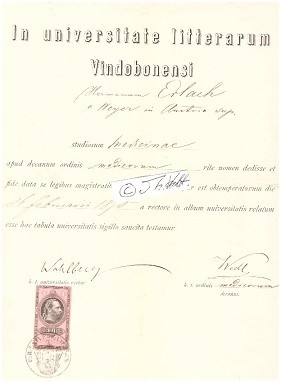 In universitate litterarum
Vindobonensi
Hermannum Erlach
e Weyer in Austria sup.
studiosum medicinae
apud decanum ordinis medicorum rite nomen dedisse et
fide data se legibus magistratibusque est obtemperaturum die
a rectore in album universitatis relatum
esse hac tabula universitatis sigillo sancita testamur.
© J. h. Voldt
Wahlberg
Wedl
h. t. universitatis rector
h. t. ordinis medicorum
decanus.